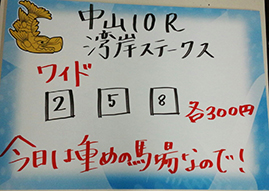 中山10R
湾岸ステークス
ワイド
2 5 8 各300円
今日は重めの馬場なので!